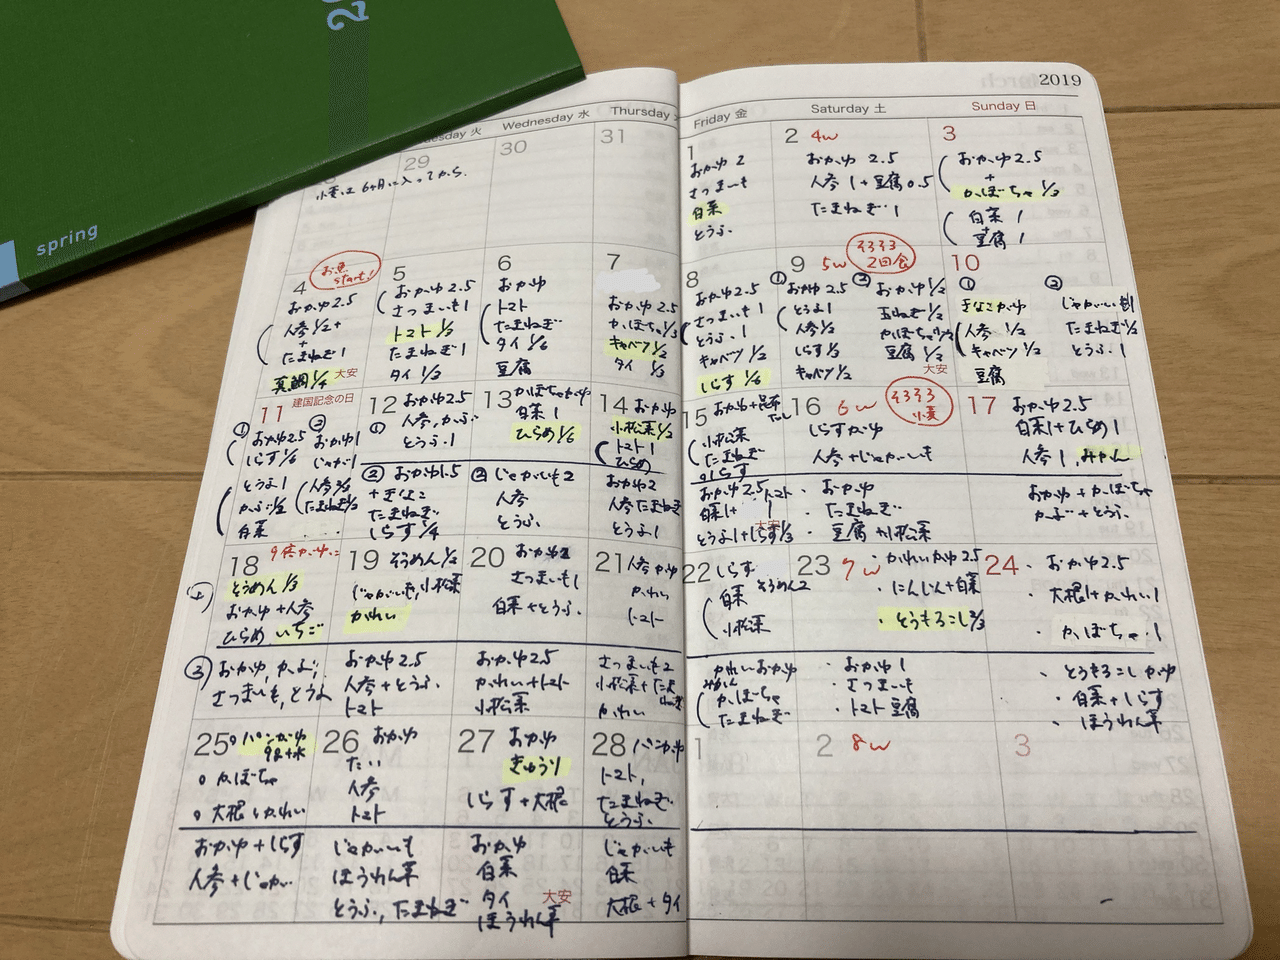 spring
2019
Wednesday 水
Thursday
Friday 金
Saturday 土
Sunday 日
29
小麦は6ヶ月に入ってから.
30
31
1
おかゆ 2
さつまいも
白菜
とうふ.
2 4w
おかゆ 2.5
人参 1 + 豆腐 0.5
たまねぎ 1
3
おかゆ 2.5
+
かぼちゃ 1/3
白菜 1
+
豆腐 1
4
お魚
start!
おかゆ 2.5
人参 1/2 +
+
たまねぎ 1
真鯛 1/4
大安
5
おかゆ 2.5
さつまいも 1
トマト 1/3
たまねぎ 1
タイ 1/3
6
おかゆ
トマト
たまねぎ
タイ 1/6
豆腐
7
おかゆ 2.5
かぼちゃ 1/3
キャベツ 1/2
タイ 1/3
8
おかゆ 2.5
さつまいも 1
とうふ. 1
キャベツ 1/2
しらす 1/6
9 5w
そろそろ
2回食
①
おかゆ 2.5
とうふ 1
人参 1/2
しらす 1/3
キャベツ 1/2
②
おかゆ 1/2
玉ねぎ 1/2
かぼちゃ 1/2
豆腐 1/2
大安
10
①
きなこかゆ
人参 1/2
キャベツ 1/2
豆腐
②
じゃがいも 1
たまねぎ 1/2
とうふ. 1
11 建国記念の日
①
おかゆ 2.5
しらす 1/6
とうふ 1
かぶ 1/2
白菜
②
おかゆ 1
じゃが 1
人参
たまねぎ 1/2
12
①
おかゆ 2.5
人参, かぶ
とうふ. 1
② おかゆ 1.5
+ きなこ
たまねぎ
しらす 1/4
13
かぼちゃかゆ
白菜 1
ひらめ 1/6
② じゃがいも 2
人参
とうふ.
14 おかゆ
小松菜 1/2
トマト 1
ひらめ
おかゆ 2
人参 たまねぎ
とうふ 1
15 おかゆ + 昆布だし
小松菜
たまねぎ
しらす
おかゆ 2.5 トマト
白菜 1 +
大安
とうふ 1 + しらす 1/3
16 6w
そろそろ
小麦
しらすかゆ
人参 + じゃがいも
・おかゆ
・たまねぎ
・豆腐 + 小松菜
17 おかゆ 2.5
白菜 1 + ひらめ 1
人参 1, みかん
おかゆ + かぼちゃ
かぶ + とうふ.
18 9倍かゆ
そうめん 1/3
おかゆ + 人参
ひらめ いちご
② おかゆ, かぶ,
さつまいも, とうふ
19 そうめん 1/2
じゃがいも, 小松菜
かれい
おかゆ 2.5
人参 + とうふ.
トマト
20 おかゆ 2
さつまいも 1
白菜 + とうふ.
おかゆ 2.5
かれい + トマト
小松菜
21 人参かゆ
かれい
トマト
さつまいも 2
小松菜 + たまねぎ
かれい
22 しらす
そうめん 2
白菜
小松菜
かれいおかゆ
みかん
かぼちゃ
たまねぎ
23 7w
・かれいかゆ 2.5
・にんじん + 白菜
・とうもろこし 2/3
・おかゆ 1
・さつまいも
・トマト 豆腐
24
・おかゆ 2.5
・大根 1 + かれい 1
・かぼちゃ. 1
・とうもろこしかゆ
・白菜 + しらす
・ほうれん草
25
○ パンかゆ
○ かぼちゃ
○ 大根 + かれい
おかゆ + しらす
人参 + じゃがい
26 おかゆ
たい
人参
トマト
じゃがいも
ほうれん草
とうふ., たまねぎ
27 おかゆ
きゅうり
しらす + 大根
おかゆ
白菜
タイ
大安
ほうれん草
28 パンかゆ
トマト,
たまねぎ
とうふ.
じゃがいも
白菜
大根 + タイ
1
2 8w
3